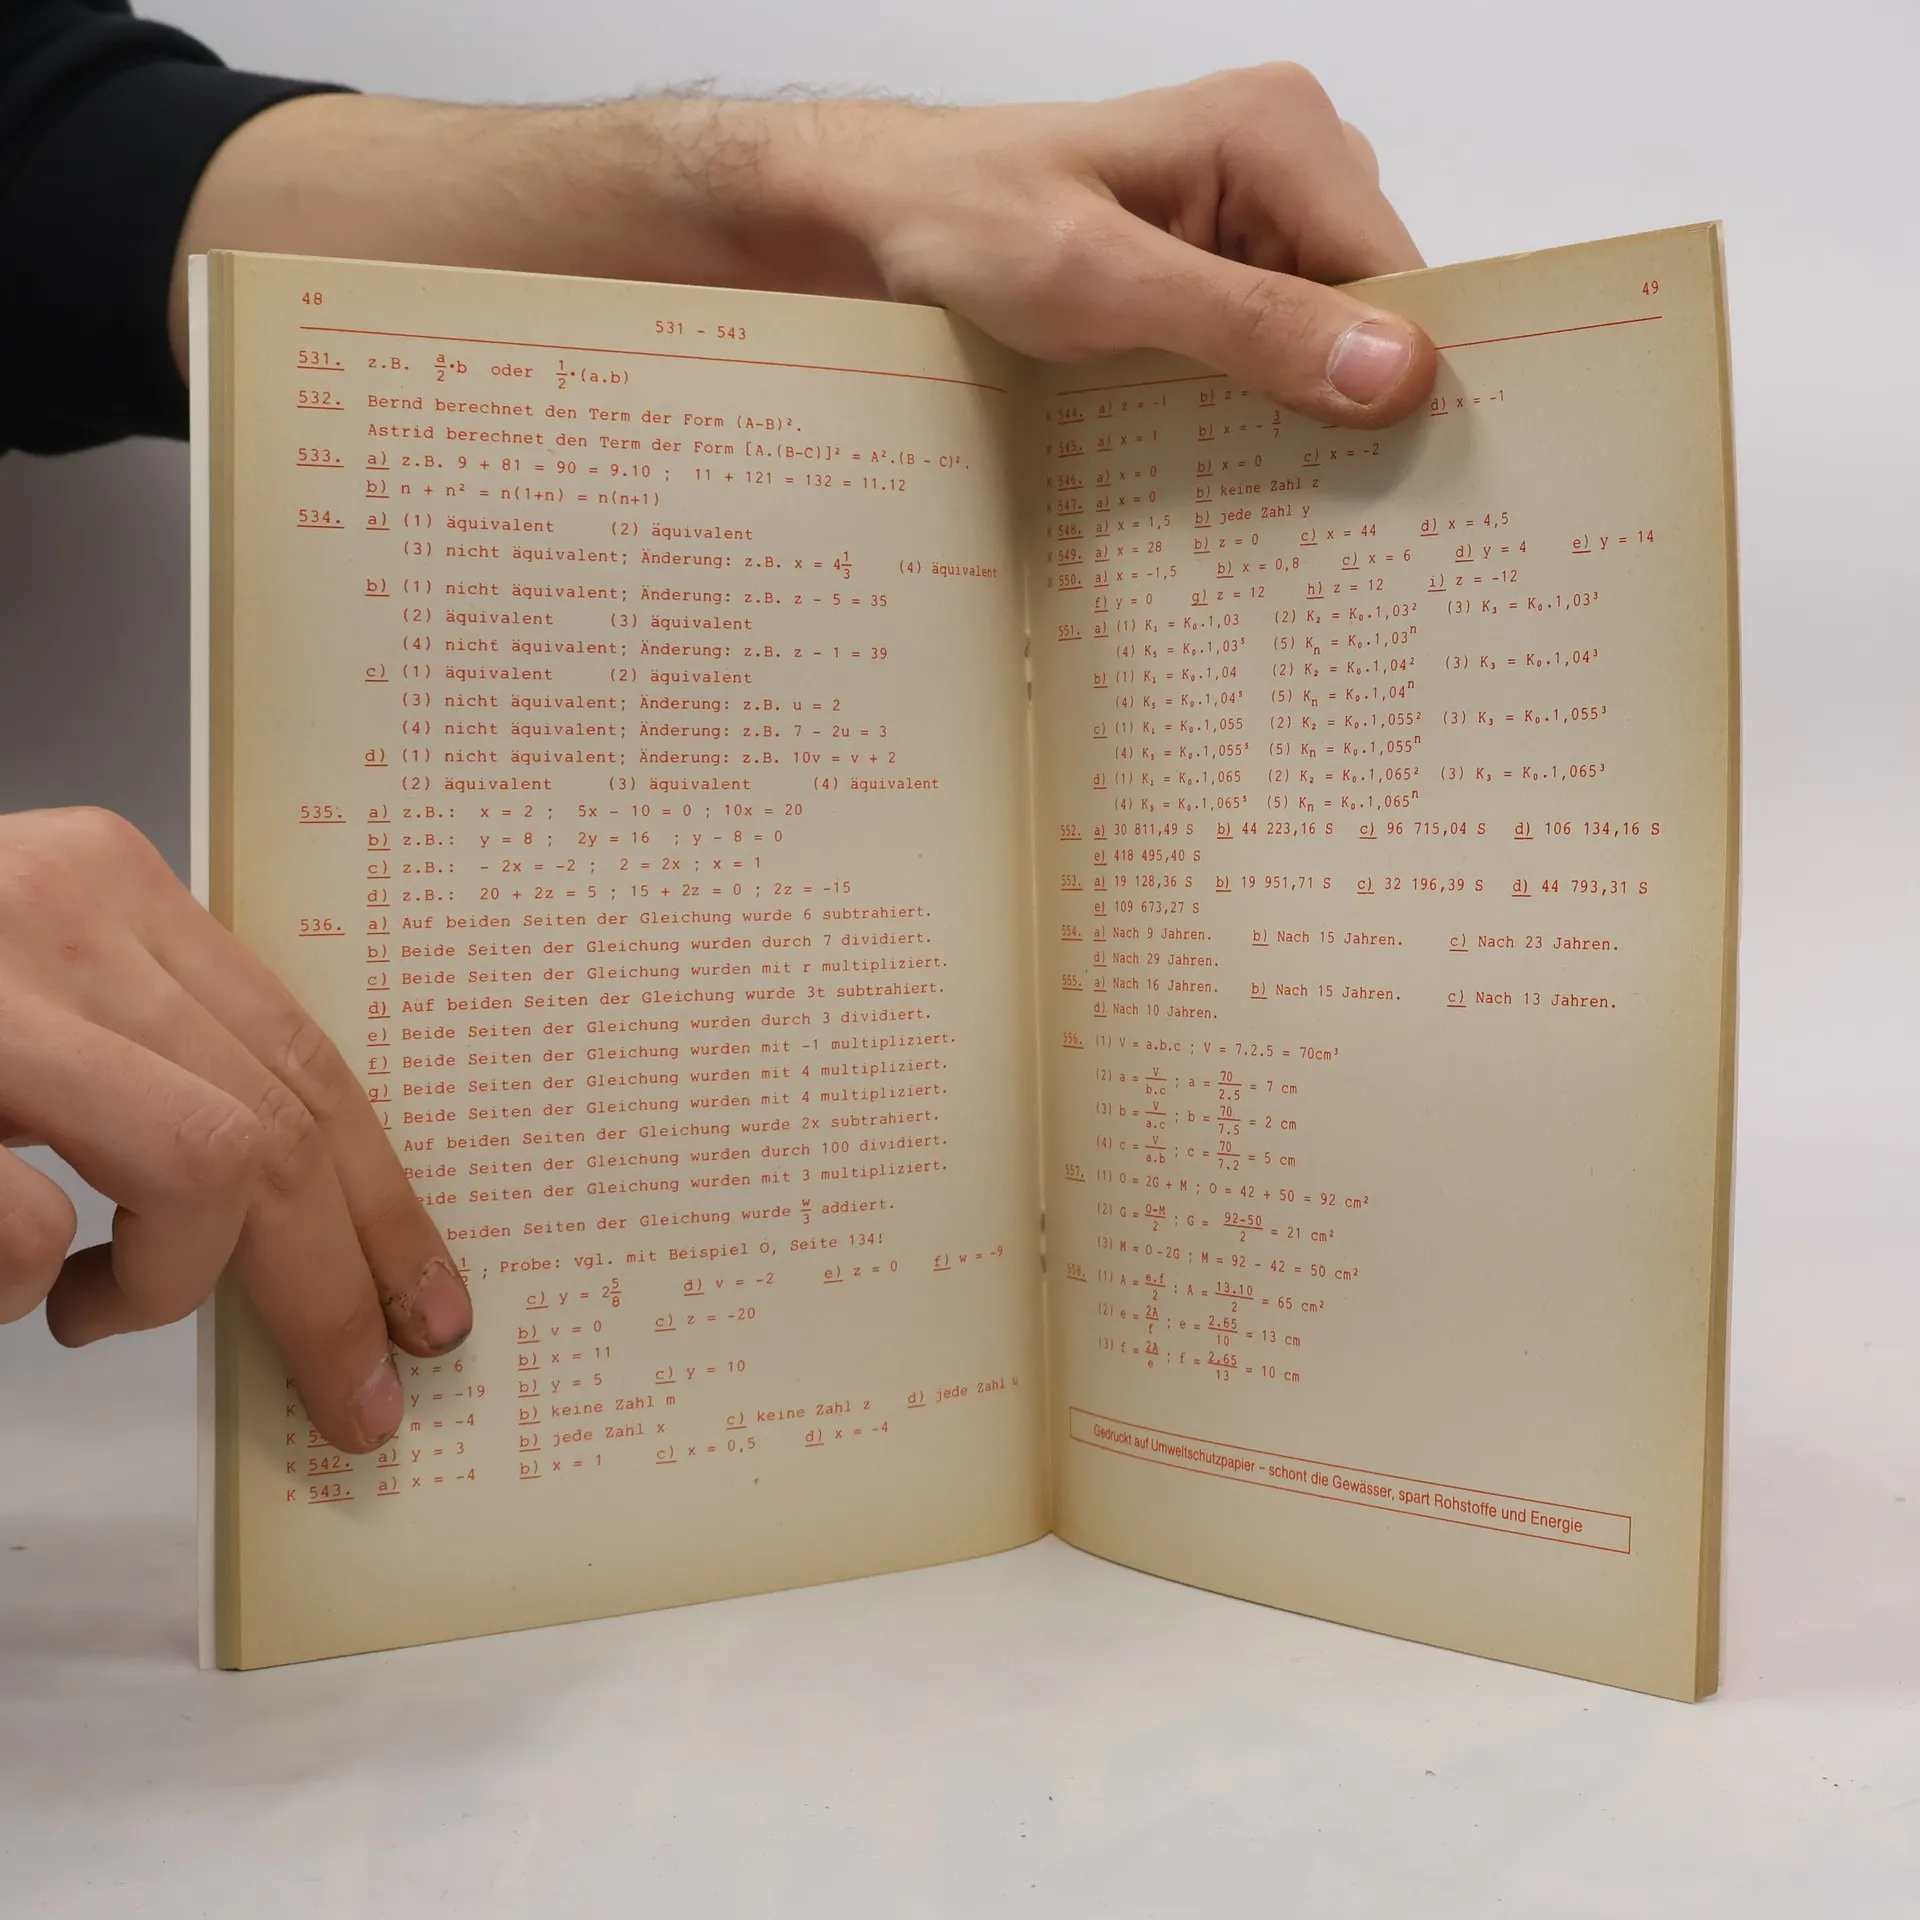 48
531 - 543
531. z.B. a/2·b oder 1/2·(a.b)
532. Bernd berechnet den Term der Form (A-B)².
Astrid berechnet den Term der Form [A.(B-C)]² = A².(B - C)².
533. a) z.B. 9 + 81 = 90 = 9.10 ; 11 + 121 = 132 = 11.12
b) n + n² = n(1+n) = n(n+1)
534. a) (1) äquivalent (2) äquivalent
(3) nicht äquivalent; Änderung: z.B. x = 4 1/3 (4) äquivalent
b) (1) nicht äquivalent; Änderung: z.B. z - 5 = 35
(2) äquivalent (3) äquivalent
(4) nicht äquivalent; Änderung: z.B. z - 1 = 39
c) (1) äquivalent (2) äquivalent
(3) nicht äquivalent; Änderung: z.B. u = 2
(4) nicht äquivalent; Änderung: z.B. 7 - 2u = 3
d) (1) nicht äquivalent; Änderung: z.B. 10v = v + 2
(2) äquivalent (3) äquivalent (4) äquivalent
535. a) z.B.: x = 2 ; 5x - 10 = 0 ; 10x = 20
b) z.B.: y = 8 ; 2y = 16 ; y - 8 = 0
c) z.B.: - 2x = -2 ; 2 = 2x ; x = 1
d) z.B.: 20 + 2z = 5 ; 15 + 2z = 0 ; 2z = -15
536. a) Auf beiden Seiten der Gleichung wurde 6 subtrahiert.
b) Beide Seiten der Gleichung wurden durch 7 dividiert.
c) Beide Seiten der Gleichung wurden mit r multipliziert.
d) Auf beiden Seiten der Gleichung wurde 3t subtrahiert.
e) Beide Seiten der Gleichung wurden durch 3 dividiert.
f) Beide Seiten der Gleichung wurden mit -1 multipliziert.
g) Beide Seiten der Gleichung wurden mit 4 multipliziert.
) Beide Seiten der Gleichung wurden mit 4 multipliziert.
Auf beiden Seiten der Gleichung wurde 2x subtrahiert.
Beide Seiten der Gleichung wurden durch 100 dividiert.
eide Seiten der Gleichung wurden mit 3 multipliziert.
beiden Seiten der Gleichung wurde w/3 addiert.
1/2 ; Probe: vgl. mit Beispiel O, Seite 134!
c) y = 2 5/8 d) v = -2 e) z = 0 f) w = -9
b) v = 0 c) z = -20
K x = 6 b) x = 11
K y = -19 b) y = 5 c) y = 10
K 5 m = -4 b) keine Zahl m
K 542. a) y = 3 b) jede Zahl x c) keine Zahl z d) jede Zahl u
K 543. a) x = -4 b) x = 1 c) x = 0,5 d) x = -4
49
K 544. a) z = -1 b) z = d) x = -1
K 545. a) x = 1 b) x = - 3/7
K 546. a) x = 0 b) x = 0 c) x = -2
K 547. a) x = 0 b) keine Zahl z
K 548. a) x = 1,5 b) jede Zahl y
K 549. a) x = 28 b) z = 0 c) x = 44 d) x = 4,5
K 550. a) x = -1,5 b) x = 0,8 c) x = 6 d) y = 4 e) y = 14
f) y = 0 g) z = 12 h) z = 12 i) z = -12
551. a) (1) K₁ = K₀.1,03 (2) K₂ = K₀.1,03² (3) K₃ = K₀.1,03³
(4) K₅ = K₀.1,03⁵ (5) Kₙ = K₀.1,03ⁿ
b) (1) K₁ = K₀.1,04 (2) K₂ = K₀.1,04² (3) K₃ = K₀.1,04³
(4) K₅ = K₀.1,04⁵ (5) Kₙ = K₀.1,04ⁿ
c) (1) K₁ = K₀.1,055 (2) K₂ = K₀.1,055² (3) K₃ = K₀.1,055³
(4) K₅ = K₀.1,055⁵ (5) Kₙ = K₀.1,055ⁿ
d) (1) K₁ = K₀.1,065 (2) K₂ = K₀.1,065² (3) K₃ = K₀.1,065³
(4) K₅ = K₀.1,065⁵ (5) Kₙ = K₀.1,065ⁿ
552. a) 30 811,49 S b) 44 223,16 S c) 96 715,04 S d) 106 134,16 S
e) 418 495,40 S
553. a) 19 128,36 S b) 19 951,71 S c) 32 196,39 S d) 44 793,31 S
e) 109 673,27 S
554. a) Nach 9 Jahren. b) Nach 15 Jahren. c) Nach 23 Jahren.
d) Nach 29 Jahren.
555. a) Nach 16 Jahren. b) Nach 15 Jahren. c) Nach 13 Jahren.
d) Nach 10 Jahren.
556. (1) V = a.b.c ; V = 7.2.5 = 70cm³
(2) a = V/b.c ; a = 70/2.5 = 7 cm
(3) b = V/a.c ; b = 70/7.5 = 2 cm
(4) c = V/a.b ; c = 70/7.2 = 5 cm
557. (1) O = 2G + M ; O = 42 + 50 = 92 cm²
(2) G = O-M/2 ; G = 92-50/2 = 21 cm²
(3) M = O-2G ; M = 92 - 42 = 50 cm²
558. (1) A = e.f/2 ; A = 13.10/2 = 65 cm²
(2) e = 2A/f ; e = 2.65/10 = 13 cm
(3) f = 2A/e ; f = 2.65/13 = 10 cm
Gedruckt auf Umweltschutzpapier – schont die Gewässer, spart Rohstoffe und Energie